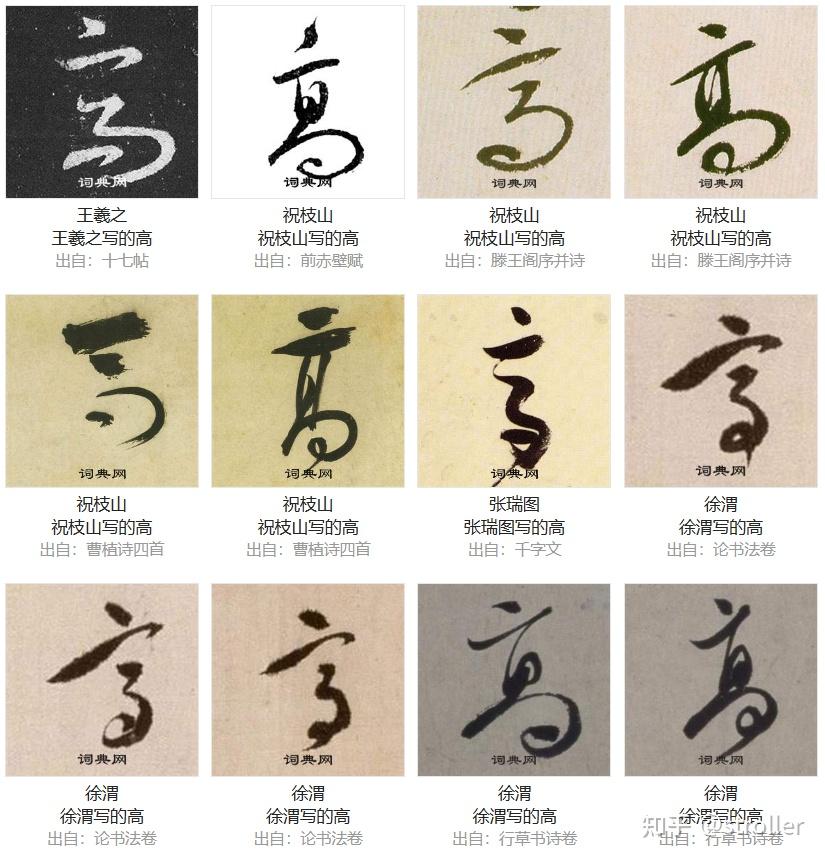 高 高 高 高
词典网 词典网 词典网 词典网
王羲之 祝枝山 祝枝山 祝枝山
王羲之写的高 祝枝山写的高 祝枝山写的高 祝枝山写的高
出自：十七帖 出自：前赤壁赋 出自：滕王阁序并诗 出自：滕王阁序并诗
高 高 高 高
词典网 词典网 词典网 词典网
祝枝山 祝枝山 张瑞图 徐渭
祝枝山写的高 祝枝山写的高 张瑞图写的高 徐渭写的高
出自：曹植诗四首 出自：曹植诗四首 出自：千字文 出自：论书法卷
高 高 高 高
词典网 词典网 词典网 词典网
徐渭 徐渭 徐渭 徐渭
徐渭写的高 徐渭写的高 徐渭写的高 徐渭写的高
知乎 @stroller
出自：论书法卷 出自：论书法卷 出自：行草书诗卷 出自：行草书诗卷